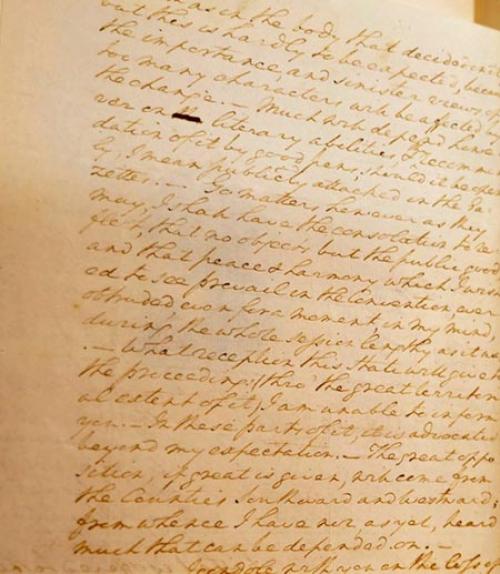 was in the body that decided on it
but this is hardly to be expected, beca
the importance, and sinister views of
too many characters will be affected by
the change. — Much will depend howe
ver on literary abilities, & recomme
dation of it by good pens, should it be ope
ly, I mean publicly attacked in the Ga-
zettes. — Go matters however as they
may, I shall have the consolation to re
flect, that no objects but the public good
and that peace & harmony which I wish
ed to see prevail in the Convention, ever
obtruded even for a moment, in my mind,
during the whole session lengthy as it was
— What reception this State will give t
the proceedings (thro' the great territor
al extent of it) I am unable to inform
you. — In these parts of it, it is advocated
beyond my expectation. — The great oppo
sition, if great is given, will come from
the Counties Southward and Westward;
from whence I have not, as yet, heard
much that can be depended on. —
I condole with you on the loss of